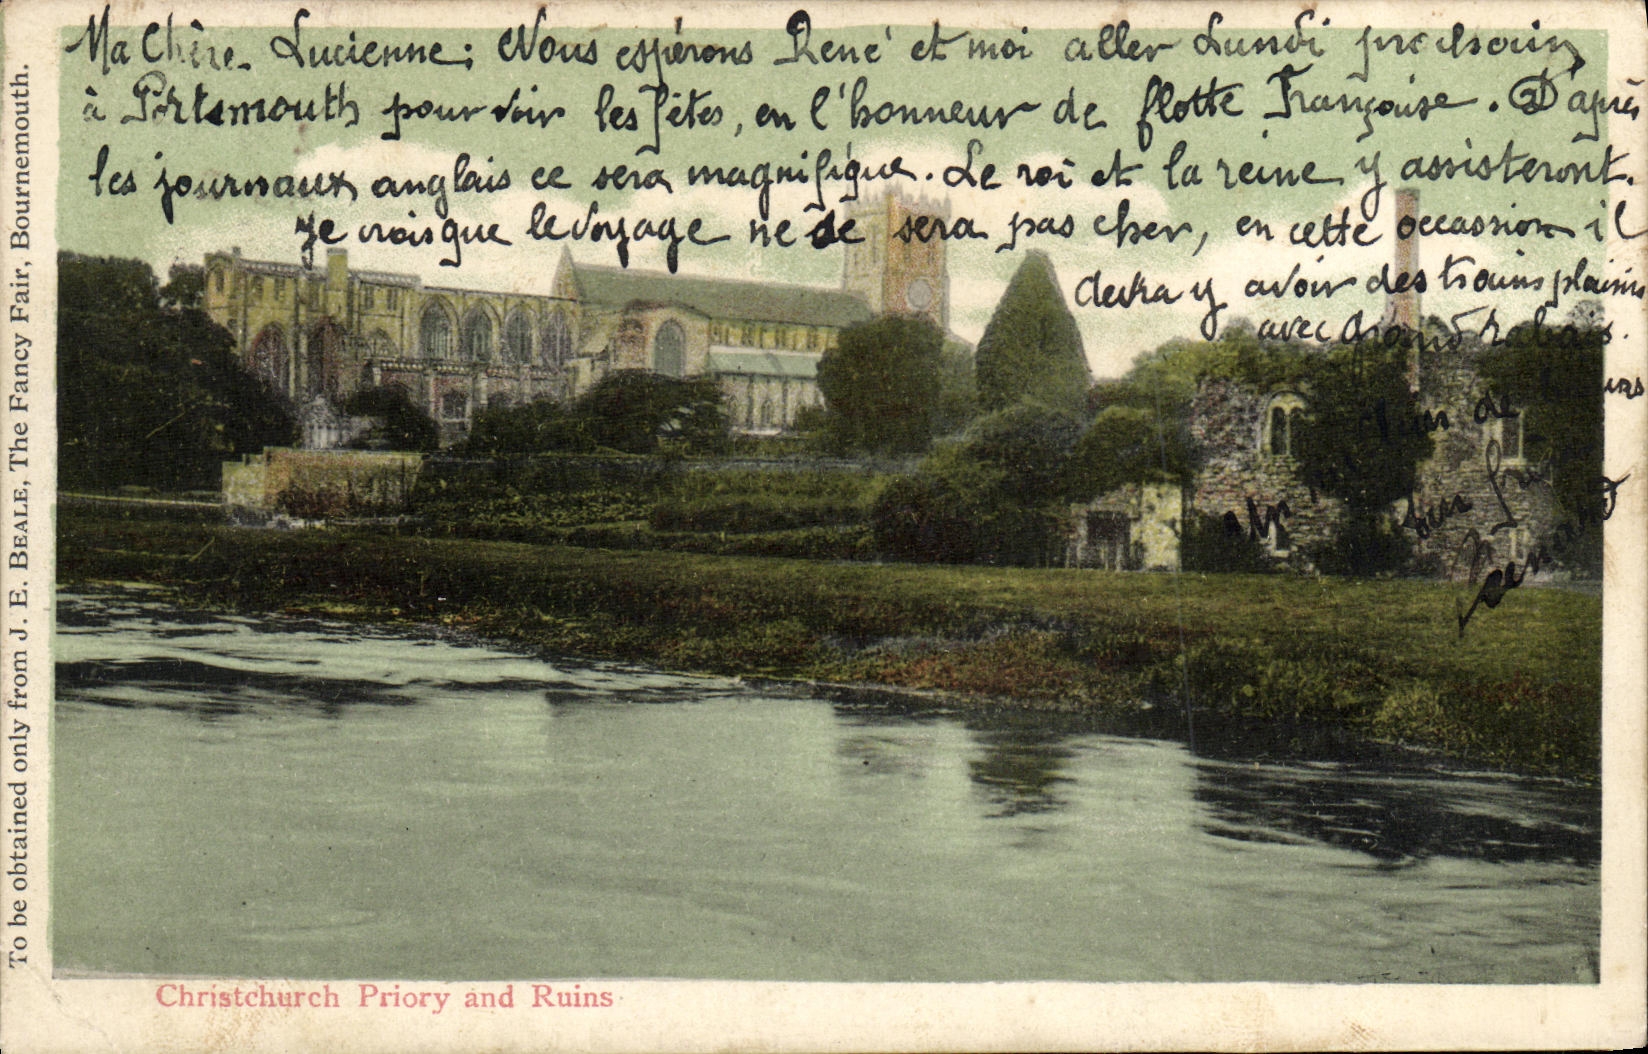 Ma Chère Lucienne; Nous espérons René et moi aller Lundi prochain
à Portsmouth pour voir les fêtes, en l'honneur de flotte Française. D'après
les journaux anglais ce sera magnifique. Le roi et la reine y assisteront.
Je crois que le voyage ne se sera pas cher, en cette occassion il
devra y avoir des trains plaisirs
avec grand rabais.
de
ton
To be obtained only from J. E. BEALE, The Fancy Fair, Bournemouth.
Christchurch Priory and Ruins